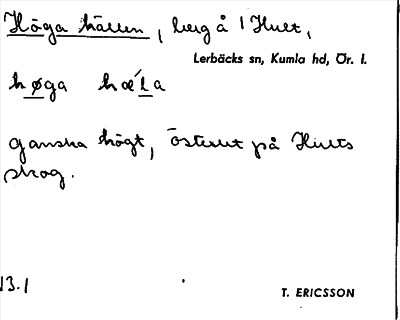 Höga hällen, berg å 1 Hult,
Lerbäcks sn, Kumla hd, Ör. l.
høga hæ´la
ganska högt, österut på Hults
skog.
13.1
T. ERICSSON